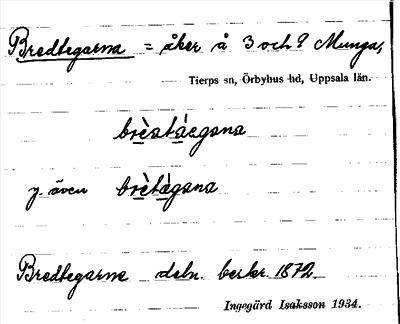 Bredtegarna = åker å 3 och 9 Munga,
Tierps sn, Örbyhus hd, Uppsala län.
y. även
Bredtegarne deln. beskr. 1872
Ingegärd Isaksson 1934.